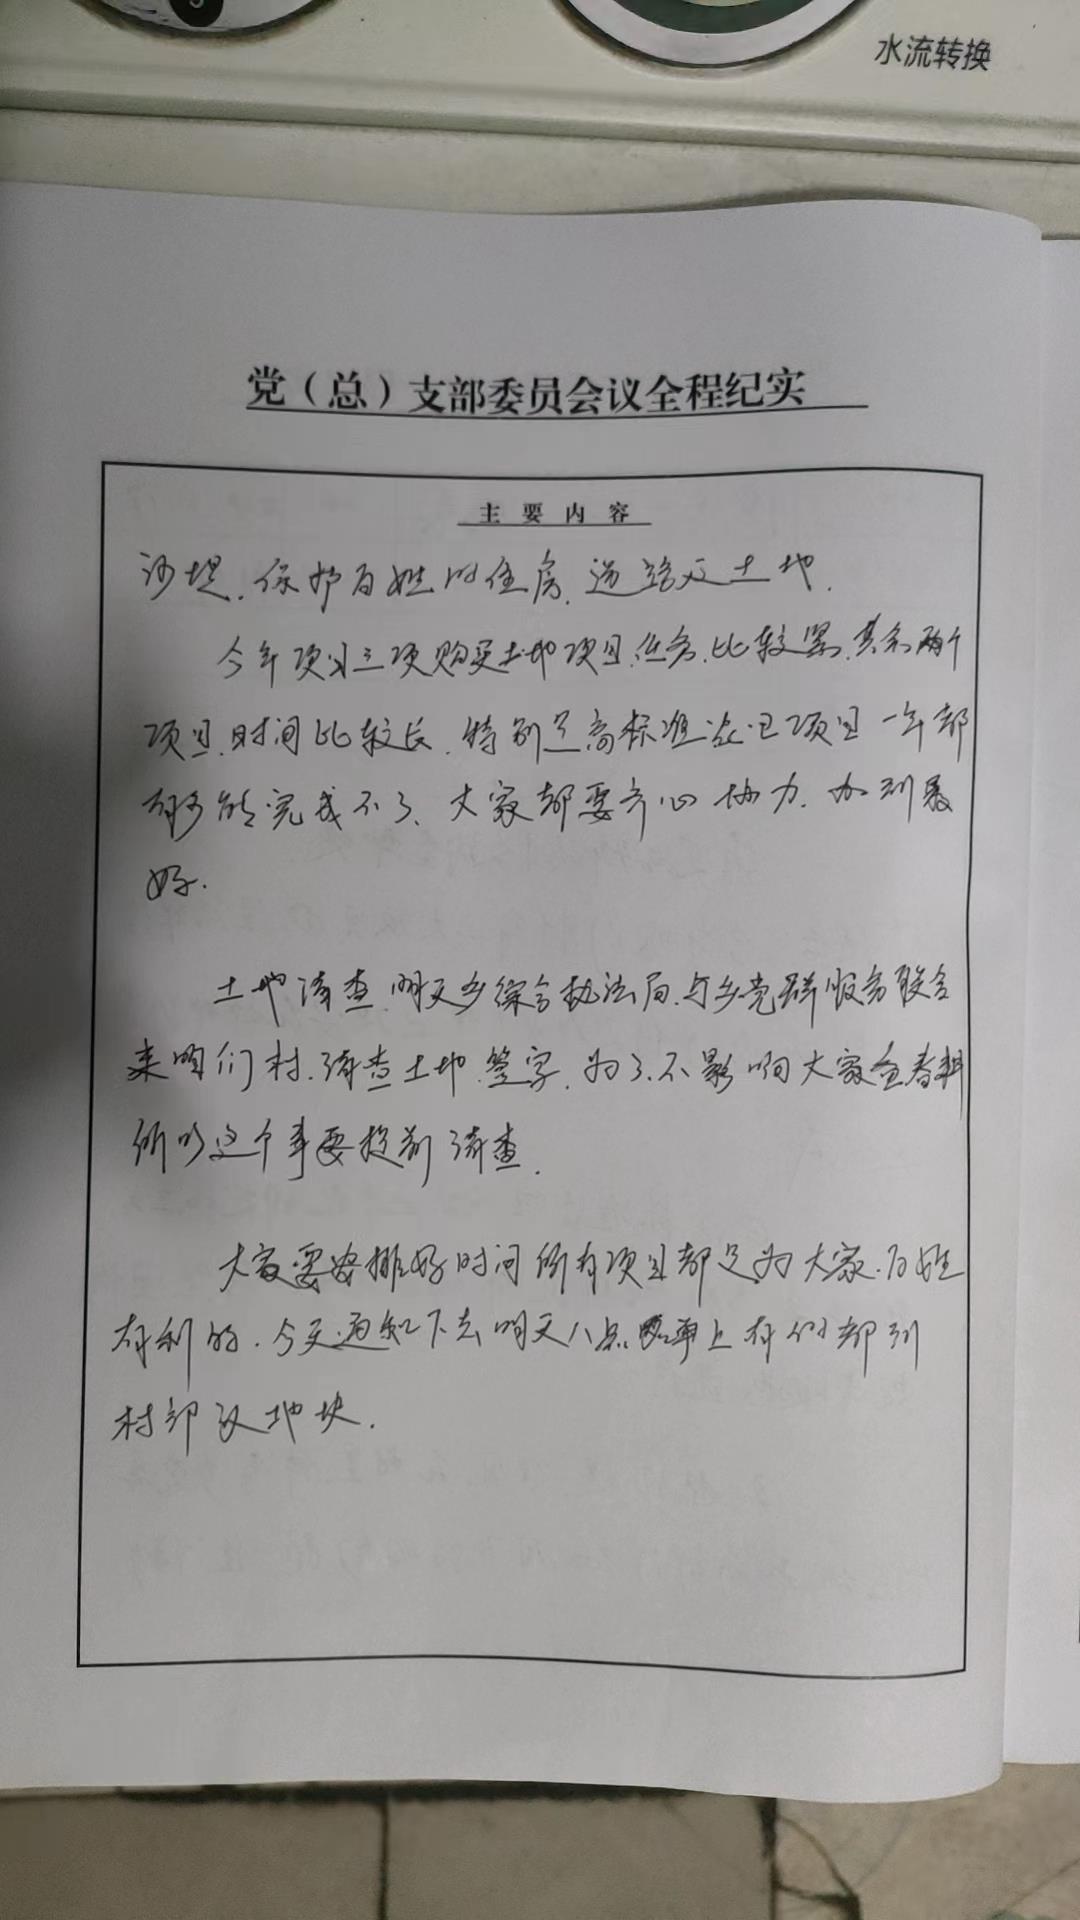 水流转换
党（总）支部委员会议全程纪实
主要内容
沙堤、保护百姓的住房、道路及土地.
今年项目三项购买土地项目,任务,比较紧,其余两个
项目,时间比较长,特别是高标准农田项目一年都
能完成不了、大家都要齐心协力、办到最
好.
土地清查,明天乡综合执法局,与乡党群服务联合
来咱们村,清查土地,签字,为了,不影响大家备春耕
所以这个事要提前清查.
大家要安排好时间所有项目都是为大家、百姓
有利的.今天通知下去明天八点 上有的都到
村部及地块.